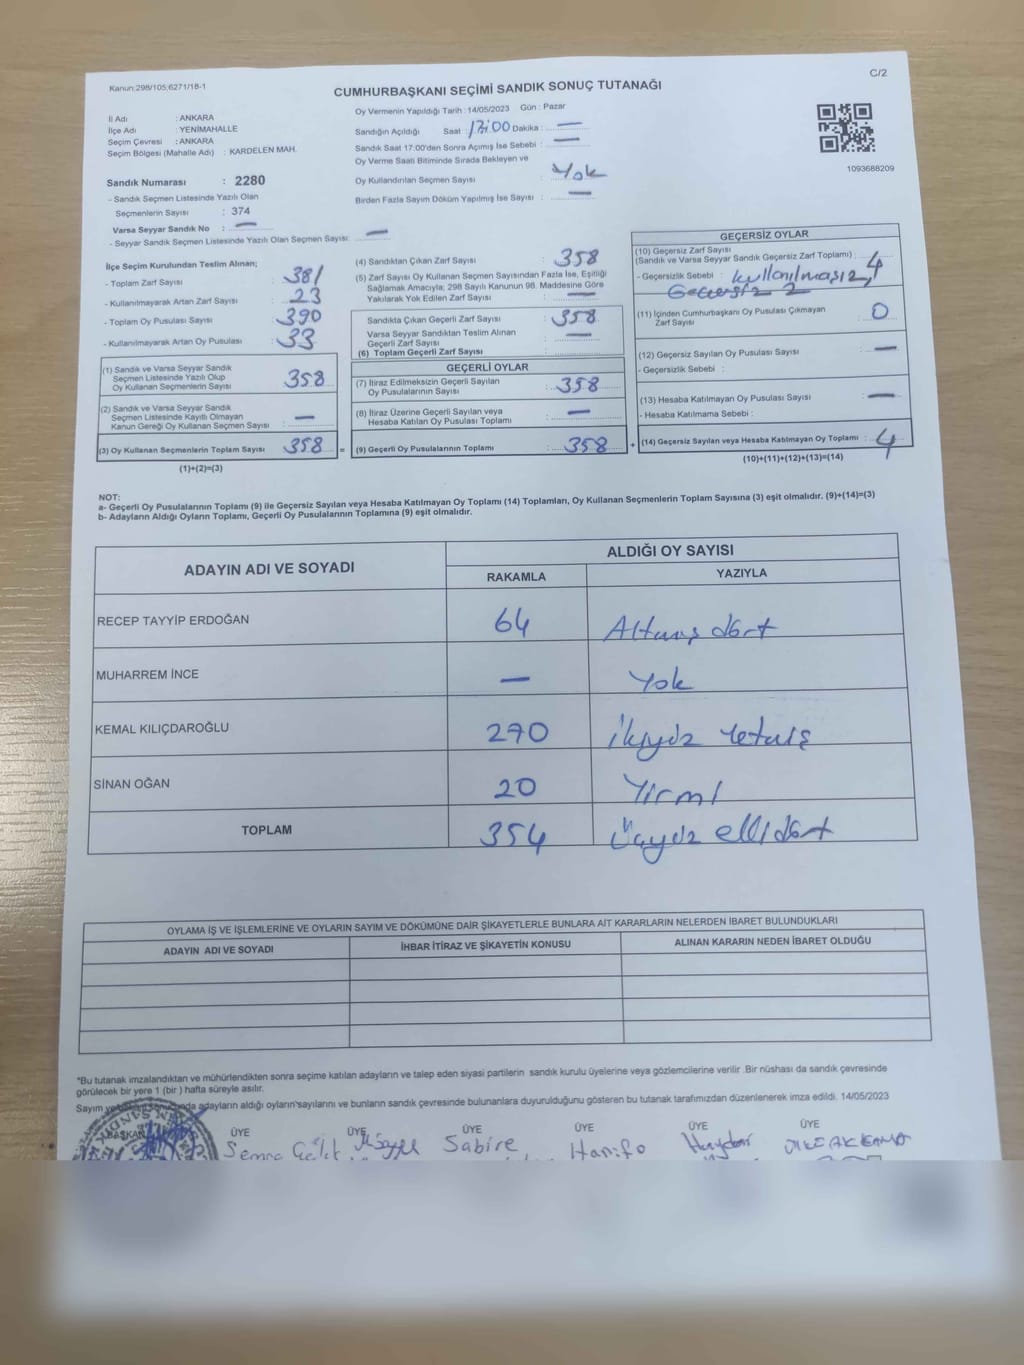 Kanun:298/105;6271/18-1
C/2
CUMHURBAŞKANI SEÇİMİ SANDIK SONUÇ TUTANAĞI
İl Adı : ANKARA
İlçe Adı : YENİMAHALLE
Seçim Çevresi : ANKARA
Seçim Bölgesi (Mahalle Adı) : KARDELEN MAH.
Sandık Numarası : 2280
- Sandık Seçmen Listesinde Yazılı Olan
Seçmenlerin Sayısı : 374
Varsa Seyyar Sandık No : —
- Seyyar Sandık Seçmen Listesinde Yazılı Olan Seçmen Sayısı: —
Oy Vermenin Yapıldığı Tarih : 14/05/2023 Gün : Pazar
Sandığın Açıldığı Saat : 17:00 Dakika : —
Sandık Saat 17:00'den Sonra Açımış İse Sebebi : —
Oy Verme Saati Bitiminde Sırada Bekleyen ve
Oy Kullandırılan Seçmen Sayısı : Yok
Birden Fazla Sayım Döküm Yapılmış İse Sayısı : —
1093688209
İlçe Seçim Kurulundan Teslim Alınan;
- Toplam Zarf Sayısı : 381
- Kullanılmayarak Artan Zarf Sayısı : 23
- Toplam Oy Pusulası Sayısı : 390
- Kullanılmayarak Artan Oy Pusulası : 33
(1) Sandık ve Varsa Seyyar Sandık
Seçmen Listesinde Yazılı Olup
Oy Kullanan Seçmenlerin Sayısı : 358
(2) Sandık ve Varsa Seyyar Sandık
Seçmen Listesinde Kayıtlı Olmayan
Kanun Gereği Oy Kullanan Seçmen Sayısı : —
(3) Oy Kullanan Seçmenlerin Toplam Sayısı : 358 =
(1)+(2)=(3)
(4) Sandıktan Çıkan Zarf Sayısı : 358
(5) Zarf Sayısı Oy Kullanan Seçmen Sayısından Fazla İse, Eşitliği
Sağlamak Amacıyla; 298 Sayılı Kanunun 98. Maddesine Göre
Yakılarak Yok Edilen Zarf Sayısı : —
Sandıkta Çıkan Geçerli Zarf Sayısı : 358
Varsa Seyyar Sandıktan Teslim Alınan
Geçerli Zarf Sayısı : —
(6) Toplam Geçerli Zarf Sayısı :
GEÇERLİ OYLAR
(7) İtiraz Edilmeksizin Geçerli Sayılan
Oy Pusulalarının Sayısı : 358
(8) İtiraz Üzerine Geçerli Sayılan veya
Hesaba Katılan Oy Pusulası Toplamı : —
(9) Geçerli Oy Pusulalarının Toplamı : 358 +
GEÇERSİZ OYLAR
(10) Geçersiz Zarf Sayısı
(Sandık ve Varsa Seyyar Sandık Geçersiz Zarf Toplamı) : 4
- Geçersizlik Sebebi : kullanılması 2,
Geçersiz 2
(11) İçinden Cumhurbaşkanı Oy Pusulası Çıkmayan
Zarf Sayısı : 0
(12) Geçersiz Sayılan Oy Pusulası Sayısı : —
- Geçersizlik Sebebi :
(13) Hesaba Katılmayan Oy Pusulası Sayısı : —
- Hesaba Katılmama Sebebi :
(14) Geçersiz Sayılan veya Hesaba Katılmayan Oy Toplamı : 4
(10)+(11)+(12)+(13)=(14)
NOT:
a- Geçerli Oy Pusulalarının Toplamı (9) ile Geçersiz Sayılan veya Hesaba Katılmayan Oy Toplamı (14) Toplamları, Oy Kullanan Seçmenlerin Toplam Sayısına (3) eşit olmalıdır. (9)+(14)=(3)
b- Adayların Aldığı Oyların Toplamı, Geçerli Oy Pusulalarının Toplamına (9) eşit olmalıdır.
ADAYIN ADI VE SOYADI ALDIĞI OY SAYISI
RAKAMLA YAZIYLA
RECEP TAYYİP ERDOĞAN 64 Altmış dört
MUHARREM İNCE — Yok
KEMAL KILIÇDAROĞLU 270 İkiyüz Yetmiş
SİNAN OĞAN 20 Yirmi
TOPLAM 354 Üçyüz ellidört
OYLAMA İŞ VE İŞLEMLERİNE VE OYLARIN SAYIM VE DÖKÜMÜNE DAİR ŞİKAYETLERLE BUNLARA AİT KARARLARIN NELERDEN İBARET BULUNDUKLARI
ADAYIN ADI VE SOYADI İHBAR İTİRAZ VE ŞİKAYETİN KONUSU ALINAN KARARIN NEDEN İBARET OLDUĞU
*Bu tutanak imzalandıktan ve mühürlendikten sonra seçime katılan adayların ve talep eden siyasi partilerin sandık kurulu üyelerine veya gözlemcilerine verilir .Bir nüshası da sandık çevresinde
görülecek bir yere 1 (bir ) hafta süreyle asılır.
Sayım ve adayların aldığı oyların sayılarını ve bunların sandık çevresinde bulunanlara duyurulduğunu gösteren bu tutanak tarafımızdan düzenlenerek imza edildi. 14/05/2023
BAŞKAN ÜYE ÜYE ÜYE ÜYE ÜYE ÜYE
Semra Sabire Hanifo Haydar